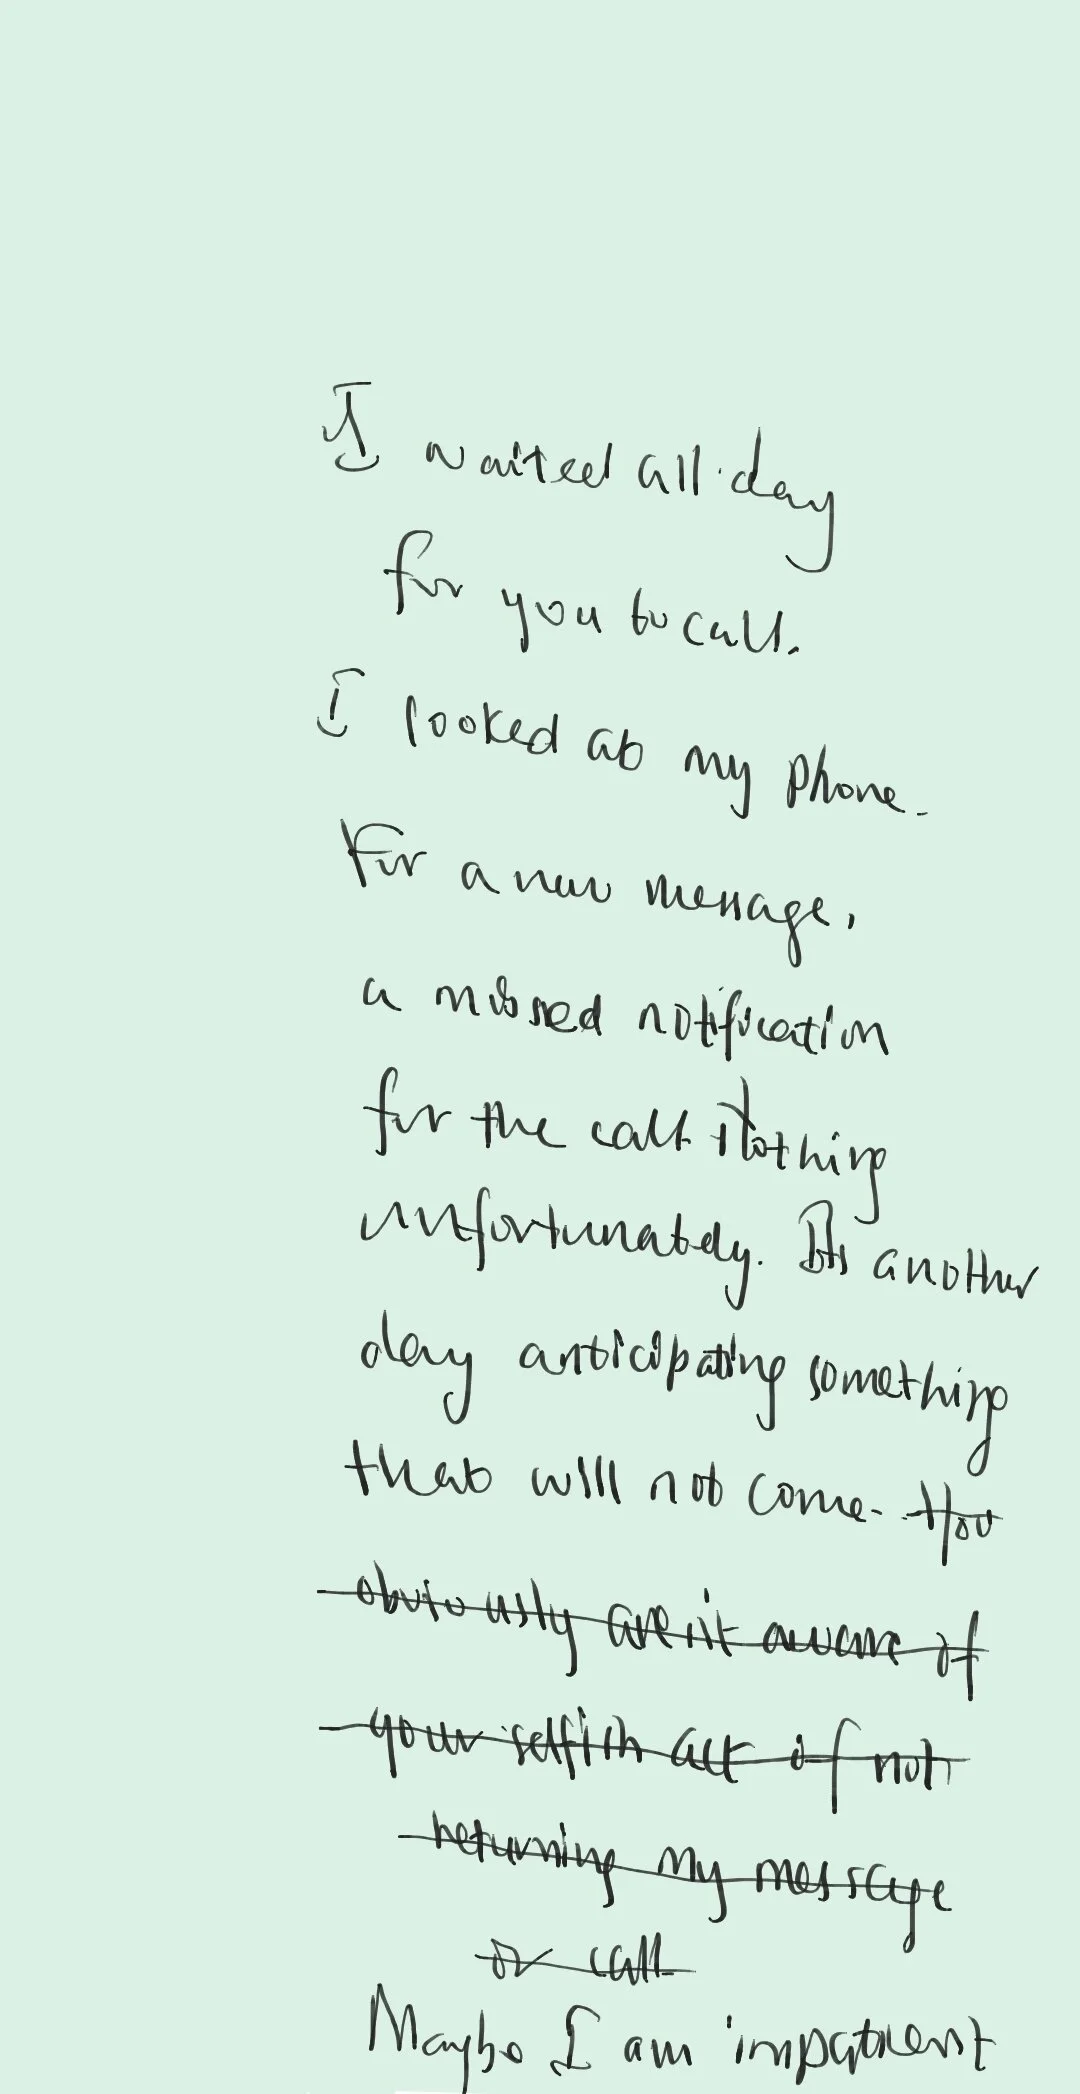 I waited all day
for you to call.
I looked at my phone.
For a new message,
a missed notification
for the call. Nothing
unfortunately. Its another
day anticipating something
that will not come. You
obviously aren't aware of
your selfish act of not
returning my message
or call
Maybe I am impatient